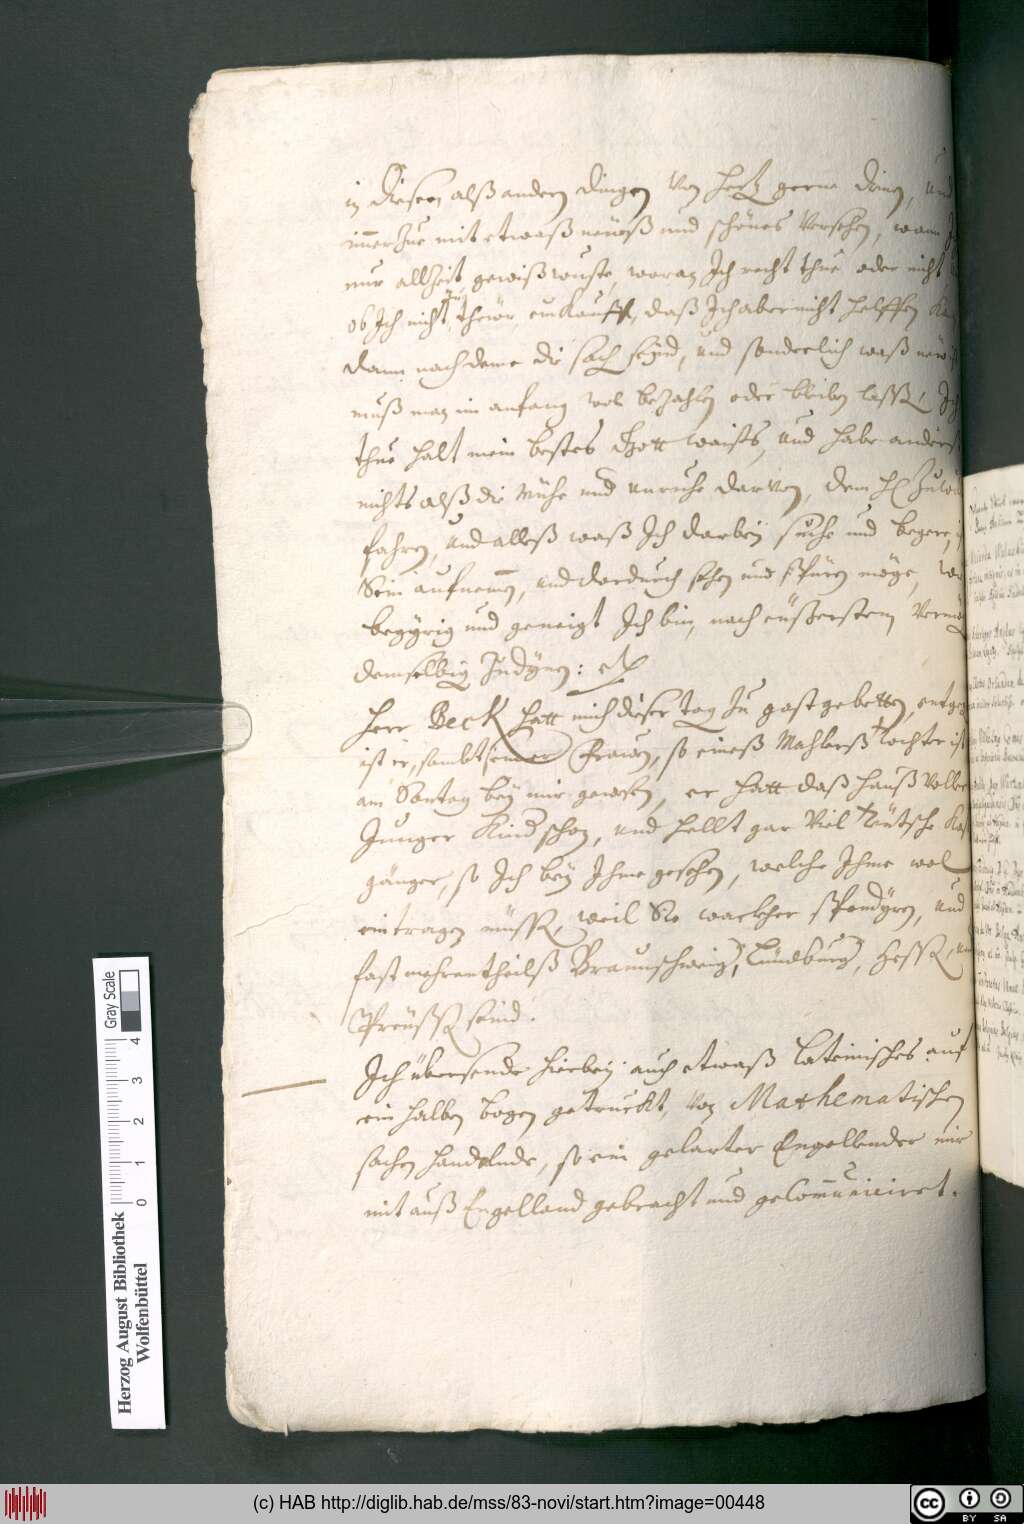 in diesen alß andern dingen von hertz gerne dienen, und
immerzue mit etwaß neüeß und schönes versehen, wann
nur allzeit gewiß wuste, woran Ich recht thue oder nicht
ob Ich nicht zu theür einkauffe, daß Ich aber nicht helffen
dann nach deme die sach seind, und sonderlich waß new
muß man im anfang wol bezahlen oder bleiben lassen,
thue halt mein bestes Gott waists, und habe anders
nichts alß die mühe und unruhe darvon, dem H
fahren, und alles waß Ich darbeij suche und begere,
Sein aufnemen, und dardurch sehen und spüren möge,
begyrig und geneigt Ich bin, nach eüßerstem
demselbig zudynen: etc
Herr Beck hatt mich dieser tag zu gast gebetten,
ist er, sambt seiner Frawen, so eines Mahlerß tochter
am Sontag beij mir gewesen, er hatt daß hauß
Junger Kind schon, und hellt gar viel teütsche
gänger, so Ich beij Ihme gesehen, welche Ihme wol
eintragen müssen, weil Sie wackher spendyren, und
fast mehrentheilß Braunschweig, Lündburg, Hessen,
Preüssen seind.
Ich übersende hierbeij auch etwaß lateinisches auf
ein halben bogen getruckt, von Mathematischen
sachen handelnde, so ein gelarter Engellender mir
mit auß Engelland gebracht und gecommuniciret.
Herzog August Bibliothek
Wolfenbüttel
0 1 2 3 4
Gray Scale
(c) HAB http://diglib.hab.de/mss/83-novi/start.htm?image=00448
cc BY SA